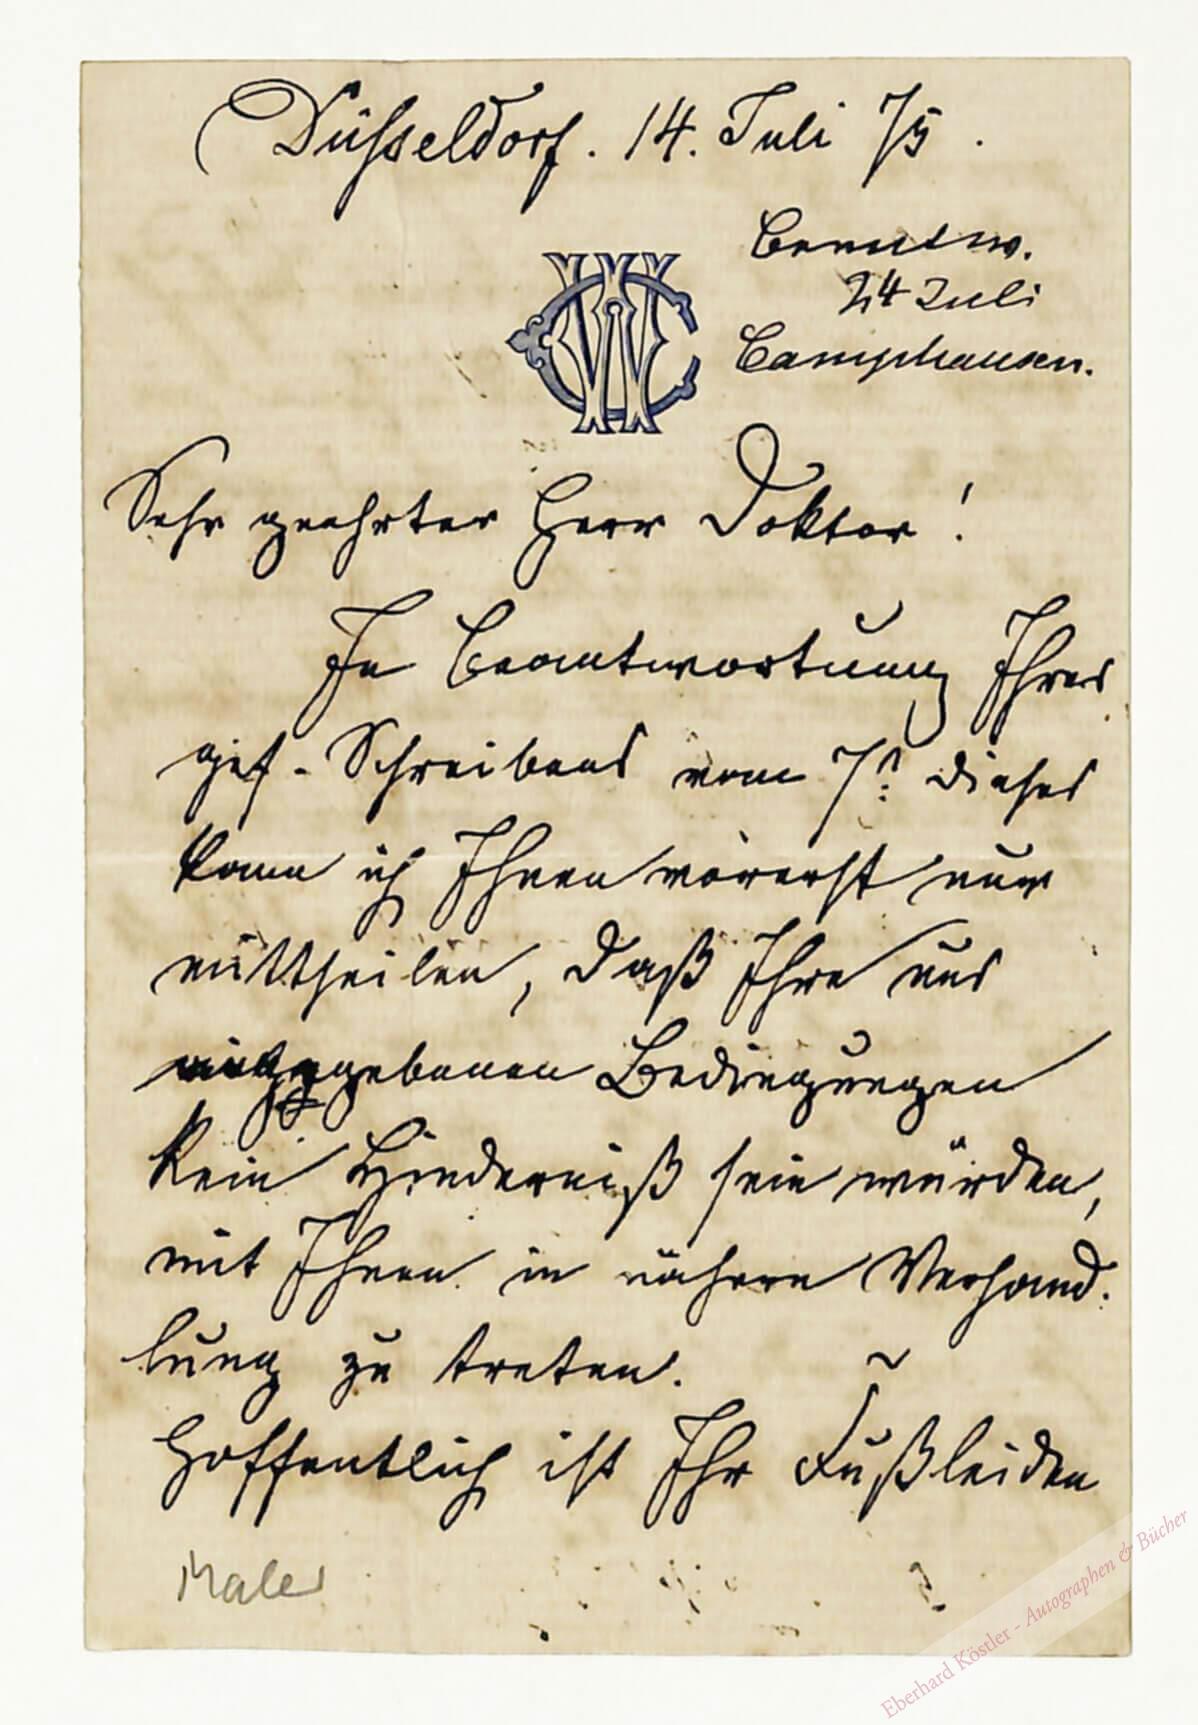 Düsseldorf. 14. Juli 75.
Beantw.
24 Juli
Camphausen.
WC
Sehr geehrter Herr Doktor!
In Beantwortung Ihres
gef. Schreibens vom 7t. dieses
kann ich Ihnen vorerst nur
mittheilen, daß Ihre uns
angegebenen Bedingungen
kein Hinderniß sein würden,
mit Ihnen in nähere Verhand.
lung zu treten. ~
Hoffentlich ist Ihr Fußleiden
Maler
Eberhard Köstler - Autographen & Bücher